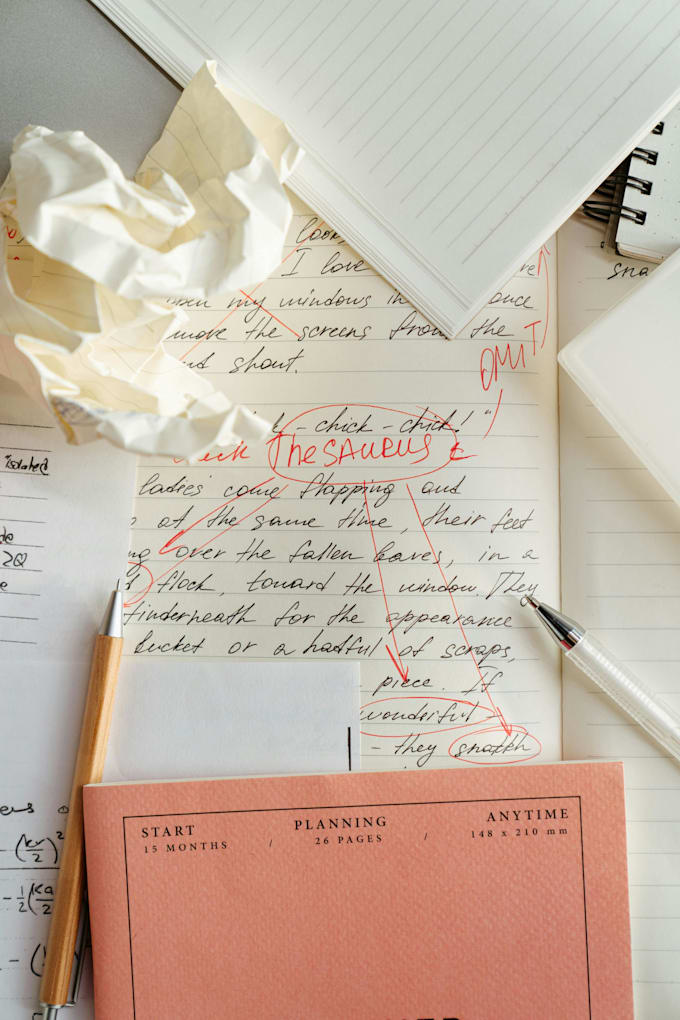 look
I love
open my windows in once
move the screens from the
and shout.
OMIT
- chick - chick! "
THESAURUS
ladies' come flapping and
at the same time, their feet
over the fallen leaves, in a
flock, toward the window. They
underneath for the appearance
bucket or a hatful of scraps,
piece. If
wonderful -
- they snatch
sna
"isolated
2Q
START
15 MONTHS
/
PLANNING
26 PAGES
/
ANYTIME
148 x 210 mm